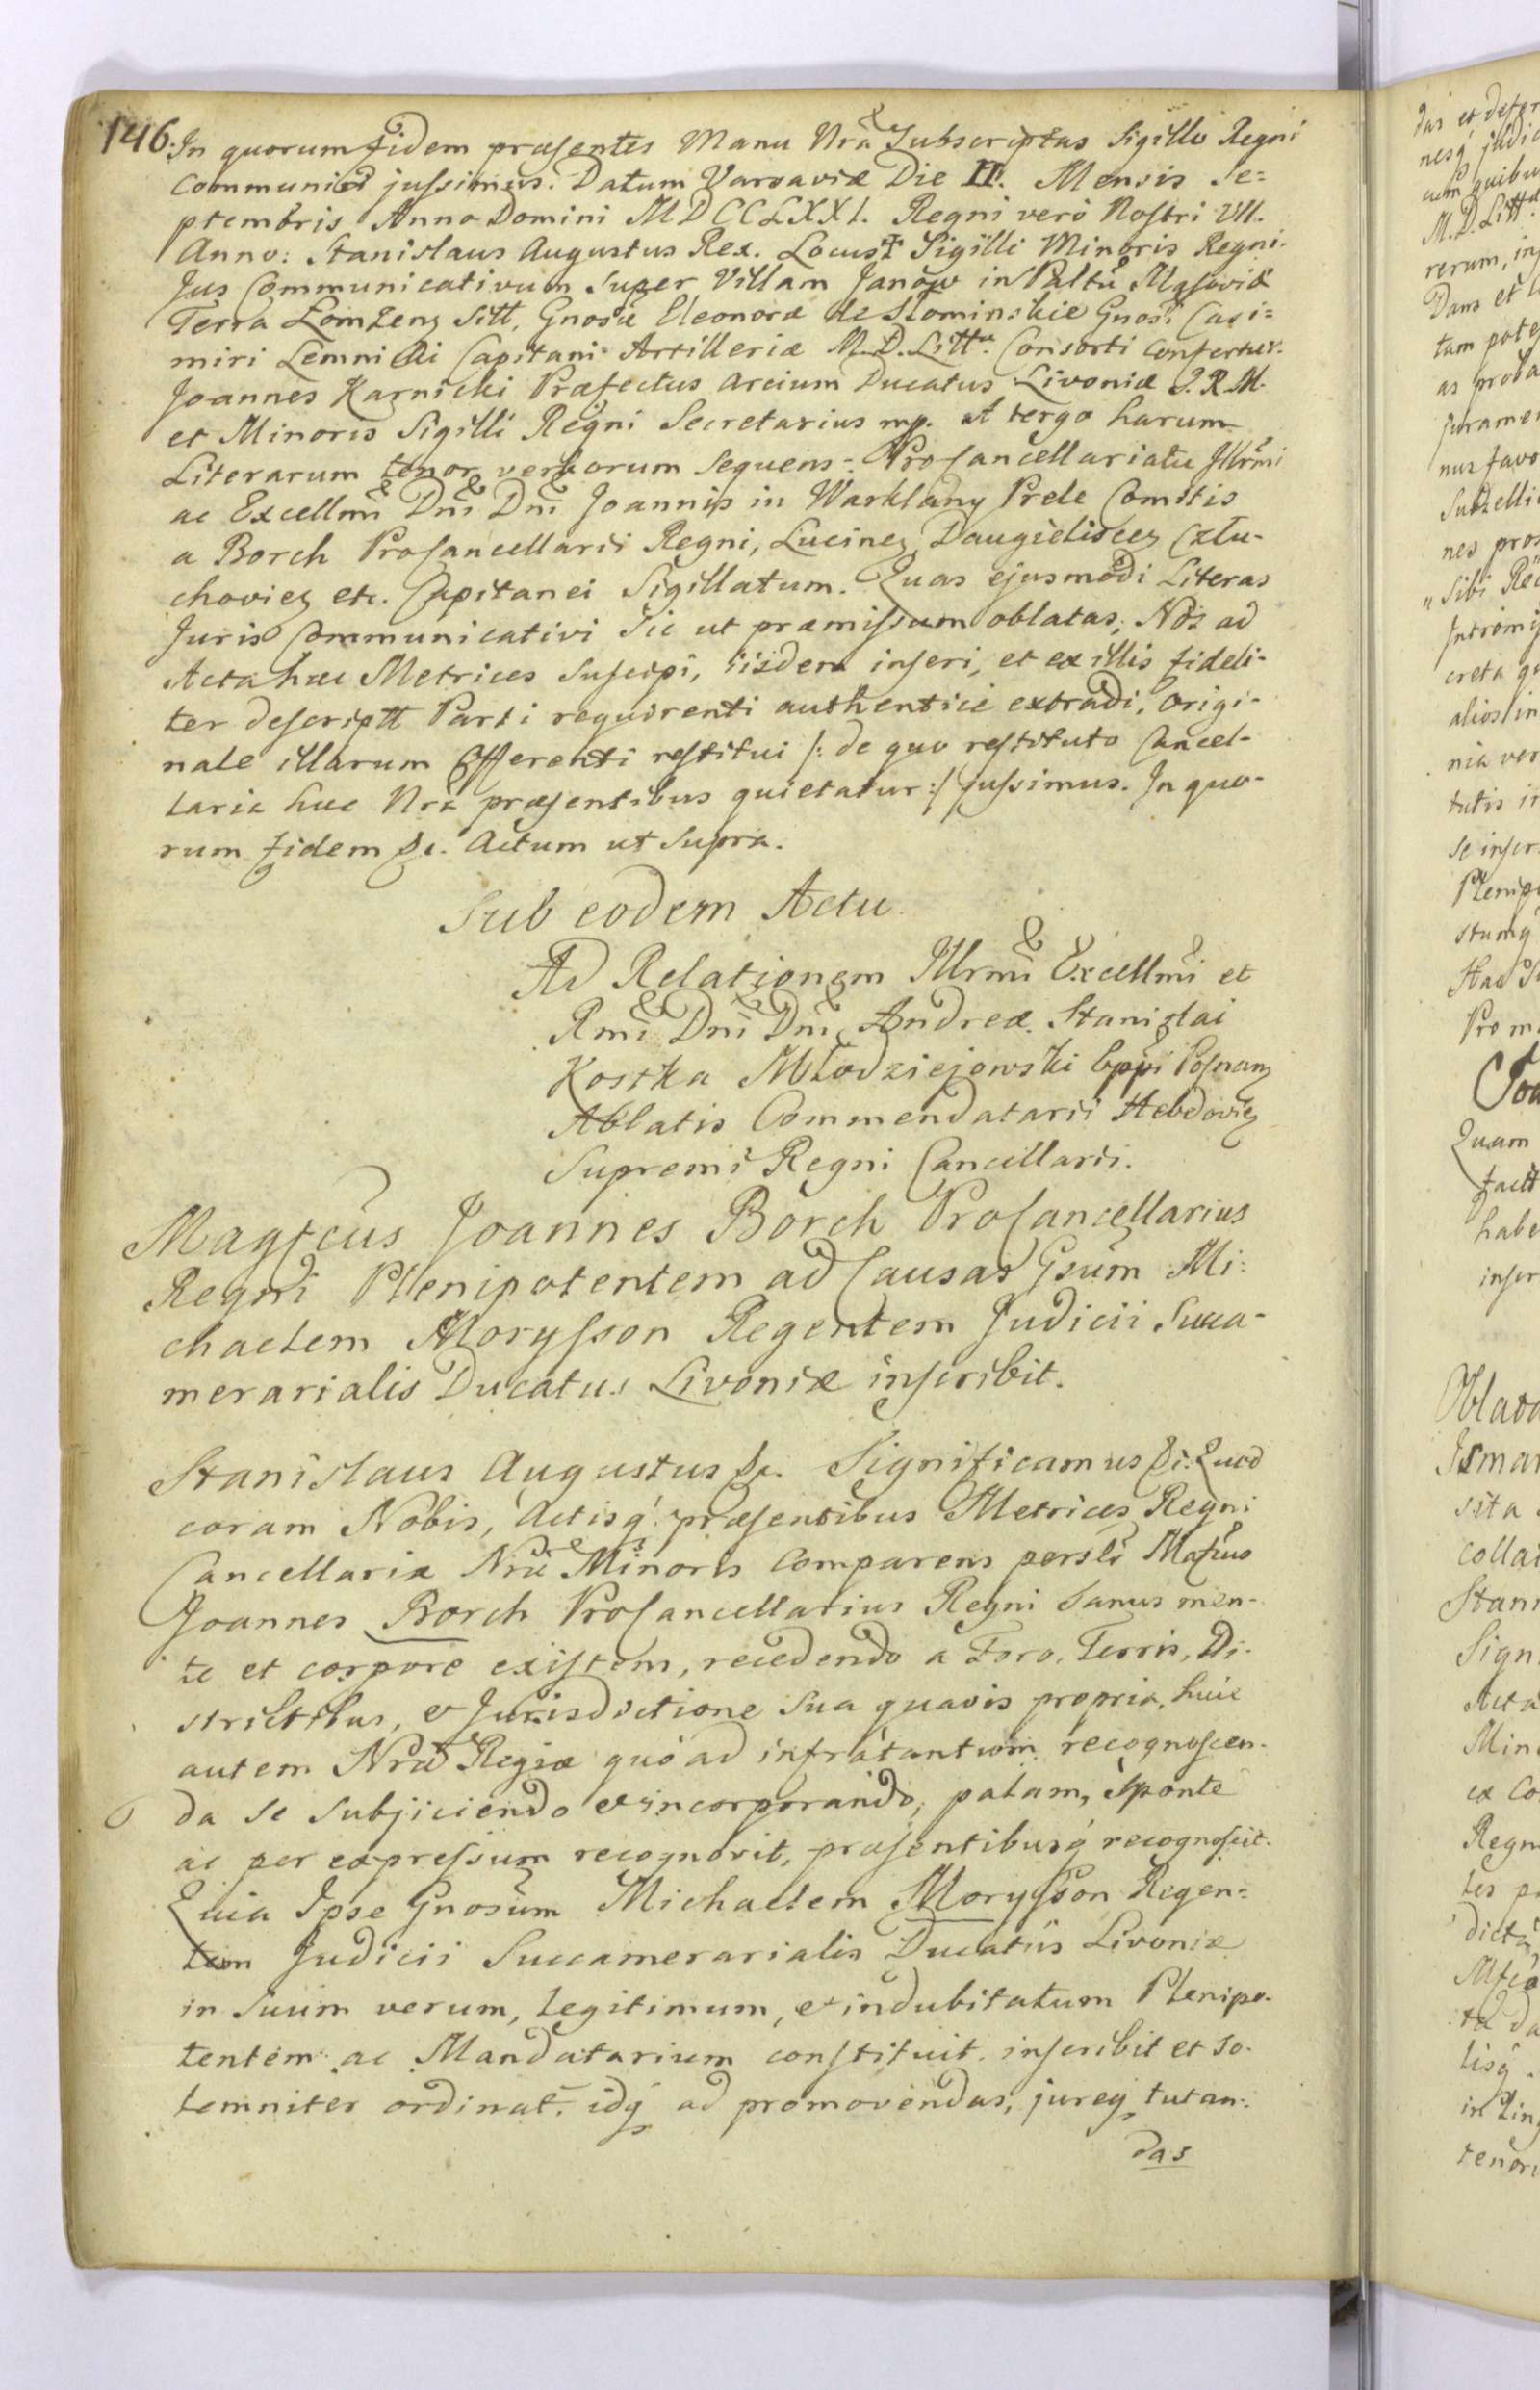 146. In quorum fidem præsentes Manu Nra Subscriptas Sigillo Regni
communiri jussimus. Datum Varsaviæ Die II. Mensis Se=
ptembris Anno Domini MDCCLXXI. Regni verò Nostri VII.
Anno: Stanislaus Augustus Rex. Locus † Sigilli Minoris Regni.
Jus Communicativum super Villam Janow in Paltu Masoviæ
Terra Łomżenz sitt, Gnosæ Eleonoræ de Słominskie Gnosi Casi=
miri Lemnicki Capitani Artilleriæ M. D. Litt. Consorti confertur.
Joannes Karnicki Præfectus Arcium Ducatus Livoniæ S. R. M.
et Minoris Sigilli Regni Secretarius mp. A tergo harum
Literarum tenor verborum sequens: ProCancellariatu Illrmi
ac Excellmi Dni Dni Joannis in Warklany Prele Comitis
a Borch ProCancellarii Regni, Lucinez, Daugieliscez Cztu-
choviez etc. Capitanei Sigillatum. Quas ejusmodi Literas
Juris Communicativi sic ut præmissum oblatas, Nos ad
Acta hæc Metrices suscipi, iisdem inseri, et ex illis fideli-
ter descriptt Parti requirenti authentice extradi, origi-
nale illarum Offerenti restitui /: de quo restituto Cancel-
laria hæc Nra præsentibus quietatur :/ jussimus. In quo-
rum fidem &c. Actum ut supra.
Sub eodem Actu.
Ad Relationem Illrmi Excellmi et
Rmi Dni Dni Andreæ Stanislai
Kostka Młodziejowski Eppi Posnanz
Abbatis Commendatarii Hebdoviez
Supremi Regni Cancellarii.
Magfcus Joannes Borch ProCancellarius
Regni Plenipotentem ad Causas Gsum Mi-
chaelem Morysson Regentem Judicii Succa-
merarialis Ducatus Livoniæ inscribit.
Stanislaus Augustus &c. Significamus &c. Quod
coram Nobis, Actisq́ præsentibus Metrices Regni
Cancellariæ Nræ Minoris comparens persli Mafcus
Joannes Borch ProCancellarius Regni sanus men-
te et corpore existens, recedendo a Foro, Terris, Di-
strictibus, & Jurisdictione sua quavis propria, huic
autem Nræ Regiæ quò ad infratantum recognoscen-
da se subjiciendo & incorporando, palam, sponte
ac per expressum recognovit, præsentibusq́ recognoscit.
Quia Ipse Gnosum Michaelem Morysson Regen=
tem Judicii Succamerarialis Ducatûs Livoniæ
in suum verum, legitimum, & indubitatum Plenipo-
tentem ac Mandatarium constituit, inscribit et so-
lemniter ordinat, idq́ ad promovendas, jureq́ tutan-
das